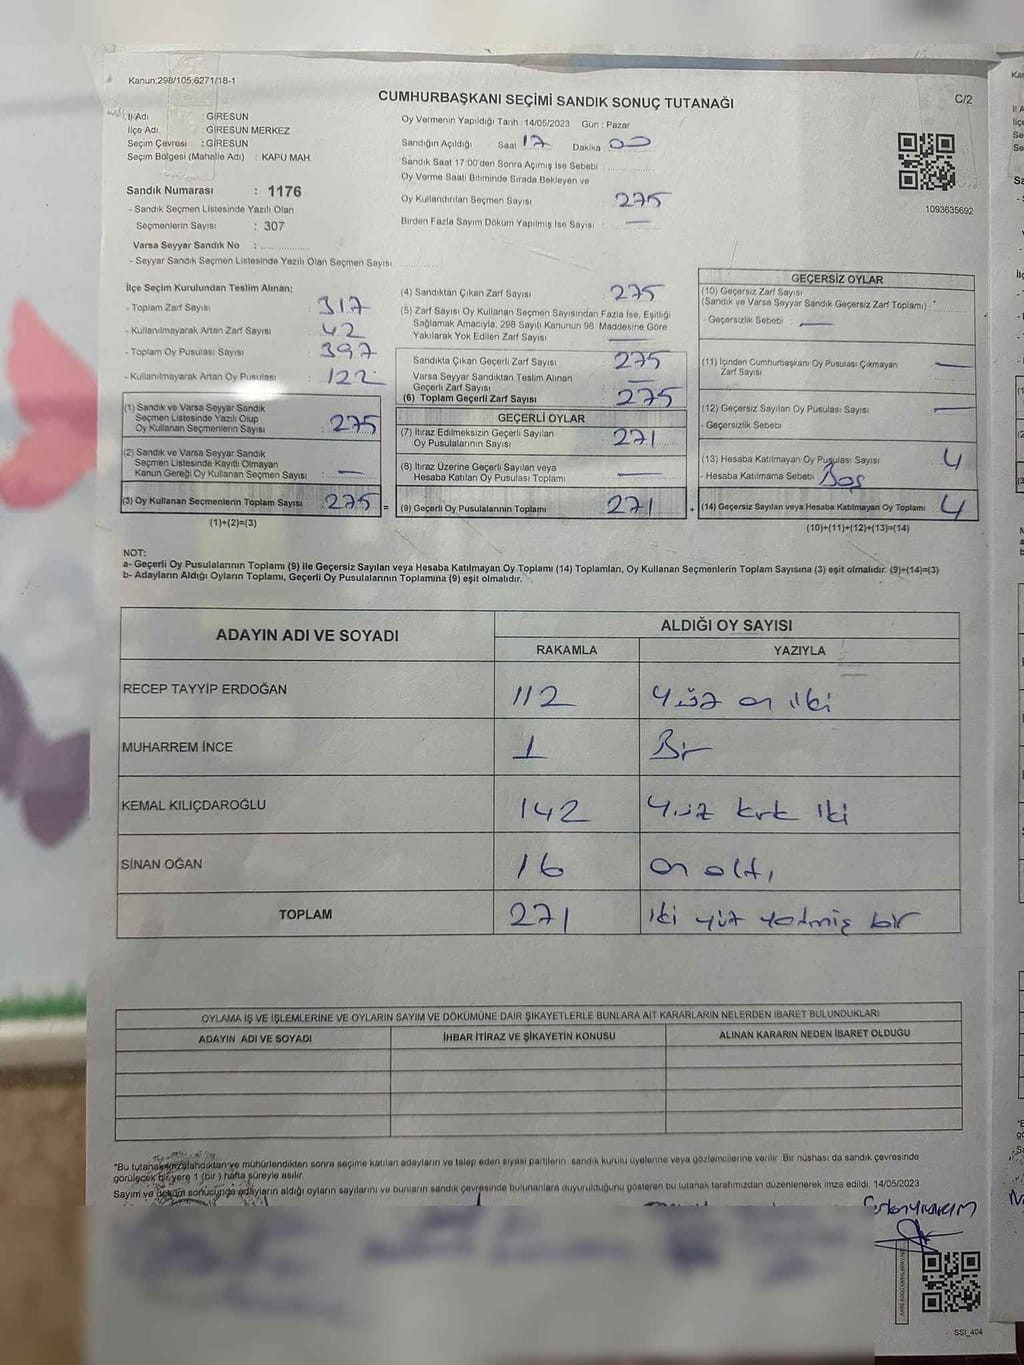 Kanun;298/105;6271/18-1
CUMHURBAŞKANI SEÇİMİ SANDIK SONUÇ TUTANAĞI
C/2
İl Adı : GİRESUN
İlçe Adı : GİRESUN MERKEZ
Seçim Çevresi : GİRESUN
Seçim Bölgesi (Mahalle Adı) : KAPU MAH.
Sandık Numarası : 1176
- Sandık Seçmen Listesinde Yazılı Olan
Seçmenlerin Sayısı : 307
Varsa Seyyar Sandık No :
- Seyyar Sandık Seçmen Listesinde Yazılı Olan Seçmen Sayısı
Oy Vermenin Yapıldığı Tarih : 14/05/2023 Gün : Pazar
Sandığın Açıldığı Saat 17 Dakika 00
Sandık Saat 17:00'den Sonra Açımış İse Sebebi :
Oy Verme Saati Bitiminde Sırada Bekleyen ve
Oy Kullandırılan Seçmen Sayısı : 275
Birden Fazla Sayım Döküm Yapılmış İse Sayısı : —
1093635692
İlçe Seçim Kurulundan Teslim Alınan;
- Toplam Zarf Sayısı : 317
- Kullanılmayarak Artan Zarf Sayısı : 42
- Toplam Oy Pusulası Sayısı : 397
- Kullanılmayarak Artan Oy Pusulası : 122
(1) Sandık ve Varsa Seyyar Sandık
Seçmen Listesinde Yazılı Olup
Oy Kullanan Seçmenlerin Sayısı : 275
(2) Sandık ve Varsa Seyyar Sandık
Seçmen Listesinde Kayıtlı Olmayan
Kanun Gereği Oy Kullanan Seçmen Sayısı : —
(3) Oy Kullanan Seçmenlerin Toplam Sayısı : 275 =
(1)+(2)=(3)
(4) Sandıktan Çıkan Zarf Sayısı : 275
(5) Zarf Sayısı Oy Kullanan Seçmen Sayısından Fazla İse, Eşitliği
Sağlamak Amacıyla, 298 Sayılı Kanunun 98. Maddesine Göre
Yakılarak Yok Edilen Zarf Sayısı : —
Sandıkta Çıkan Geçerli Zarf Sayısı : 275
Varsa Seyyar Sandıktan Teslim Alınan
Geçerli Zarf Sayısı : —
(6) Toplam Geçerli Zarf Sayısı : 275
GEÇERLİ OYLAR
(7) İtiraz Edilmeksizin Geçerli Sayılan
Oy Pusulalarının Sayısı : 271
(8) İtiraz Üzerine Geçerli Sayılan veya
Hesaba Katılan Oy Pusulası Toplamı : —
(9) Geçerli Oy Pusulalarının Toplamı : 271 +
GEÇERSİZ OYLAR
(10) Geçersiz Zarf Sayısı
(Sandık ve Varsa Seyyar Sandık Geçersiz Zarf Toplamı) :
- Geçersizlik Sebebi : —
(11) İçinden Cumhurbaşkanı Oy Pusulası Çıkmayan
Zarf Sayısı —
(12) Geçersiz Sayılan Oy Pusulası Sayısı —
- Geçersizlik Sebebi
(13) Hesaba Katılmayan Oy Pusulası Sayısı 4
- Hesaba Katılmama Sebebi Boş
(14) Geçersiz Sayılan veya Hesaba Katılmayan Oy Toplamı 4
(10)+(11)+(12)+(13)=(14)
NOT:
a- Geçerli Oy Pusulalarının Toplamı (9) ile Geçersiz Sayılan veya Hesaba Katılmayan Oy Toplamı (14) Toplamları, Oy Kullanan Seçmenlerin Toplam Sayısına (3) eşit olmalıdır. (9)+(14)=(3)
b- Adayların Aldığı Oyların Toplamı, Geçerli Oy Pusulalarının Toplamına (9) eşit olmalıdır.
ADAYIN ADI VE SOYADI
ALDIĞI OY SAYISI
RAKAMLA YAZIYLA
RECEP TAYYİP ERDOĞAN 112 yüz on iki
MUHARREM İNCE 1 Bir
KEMAL KILIÇDAROĞLU 142 yüz kırk iki
SİNAN OĞAN 16 on altı
TOPLAM 271 iki yüz yetmiş bir
OYLAMA İŞ VE İŞLEMLERİNE VE OYLARIN SAYIM VE DÖKÜMÜNE DAİR ŞİKAYETLERLE BUNLARA AİT KARARLARIN NELERDEN İBARET BULUNDUKLARI
ADAYIN ADI VE SOYADI İHBAR İTİRAZ VE ŞİKAYETİN KONUSU ALINAN KARARIN NEDEN İBARET OLDUĞU
*Bu tutanak imzalandıktan ve mühürlendikten sonra seçime katılan adayların ve talep eden siyasi partilerin sandık kurulu üyelerine veya gözlemcilerine verilir. Bir nüshası da sandık çevresinde
görülecek bir yere 1 (bir) hafta süreyle asılır.
Sayım ve döküm sonucunda adayların aldığı oyların sayılarını ve bunların sandık çevresinde bulunanlara duyurulduğunu gösteren bu tutanak tarafımızdan düzenlenerek imza edildi. 14/05/2023
SSI_404